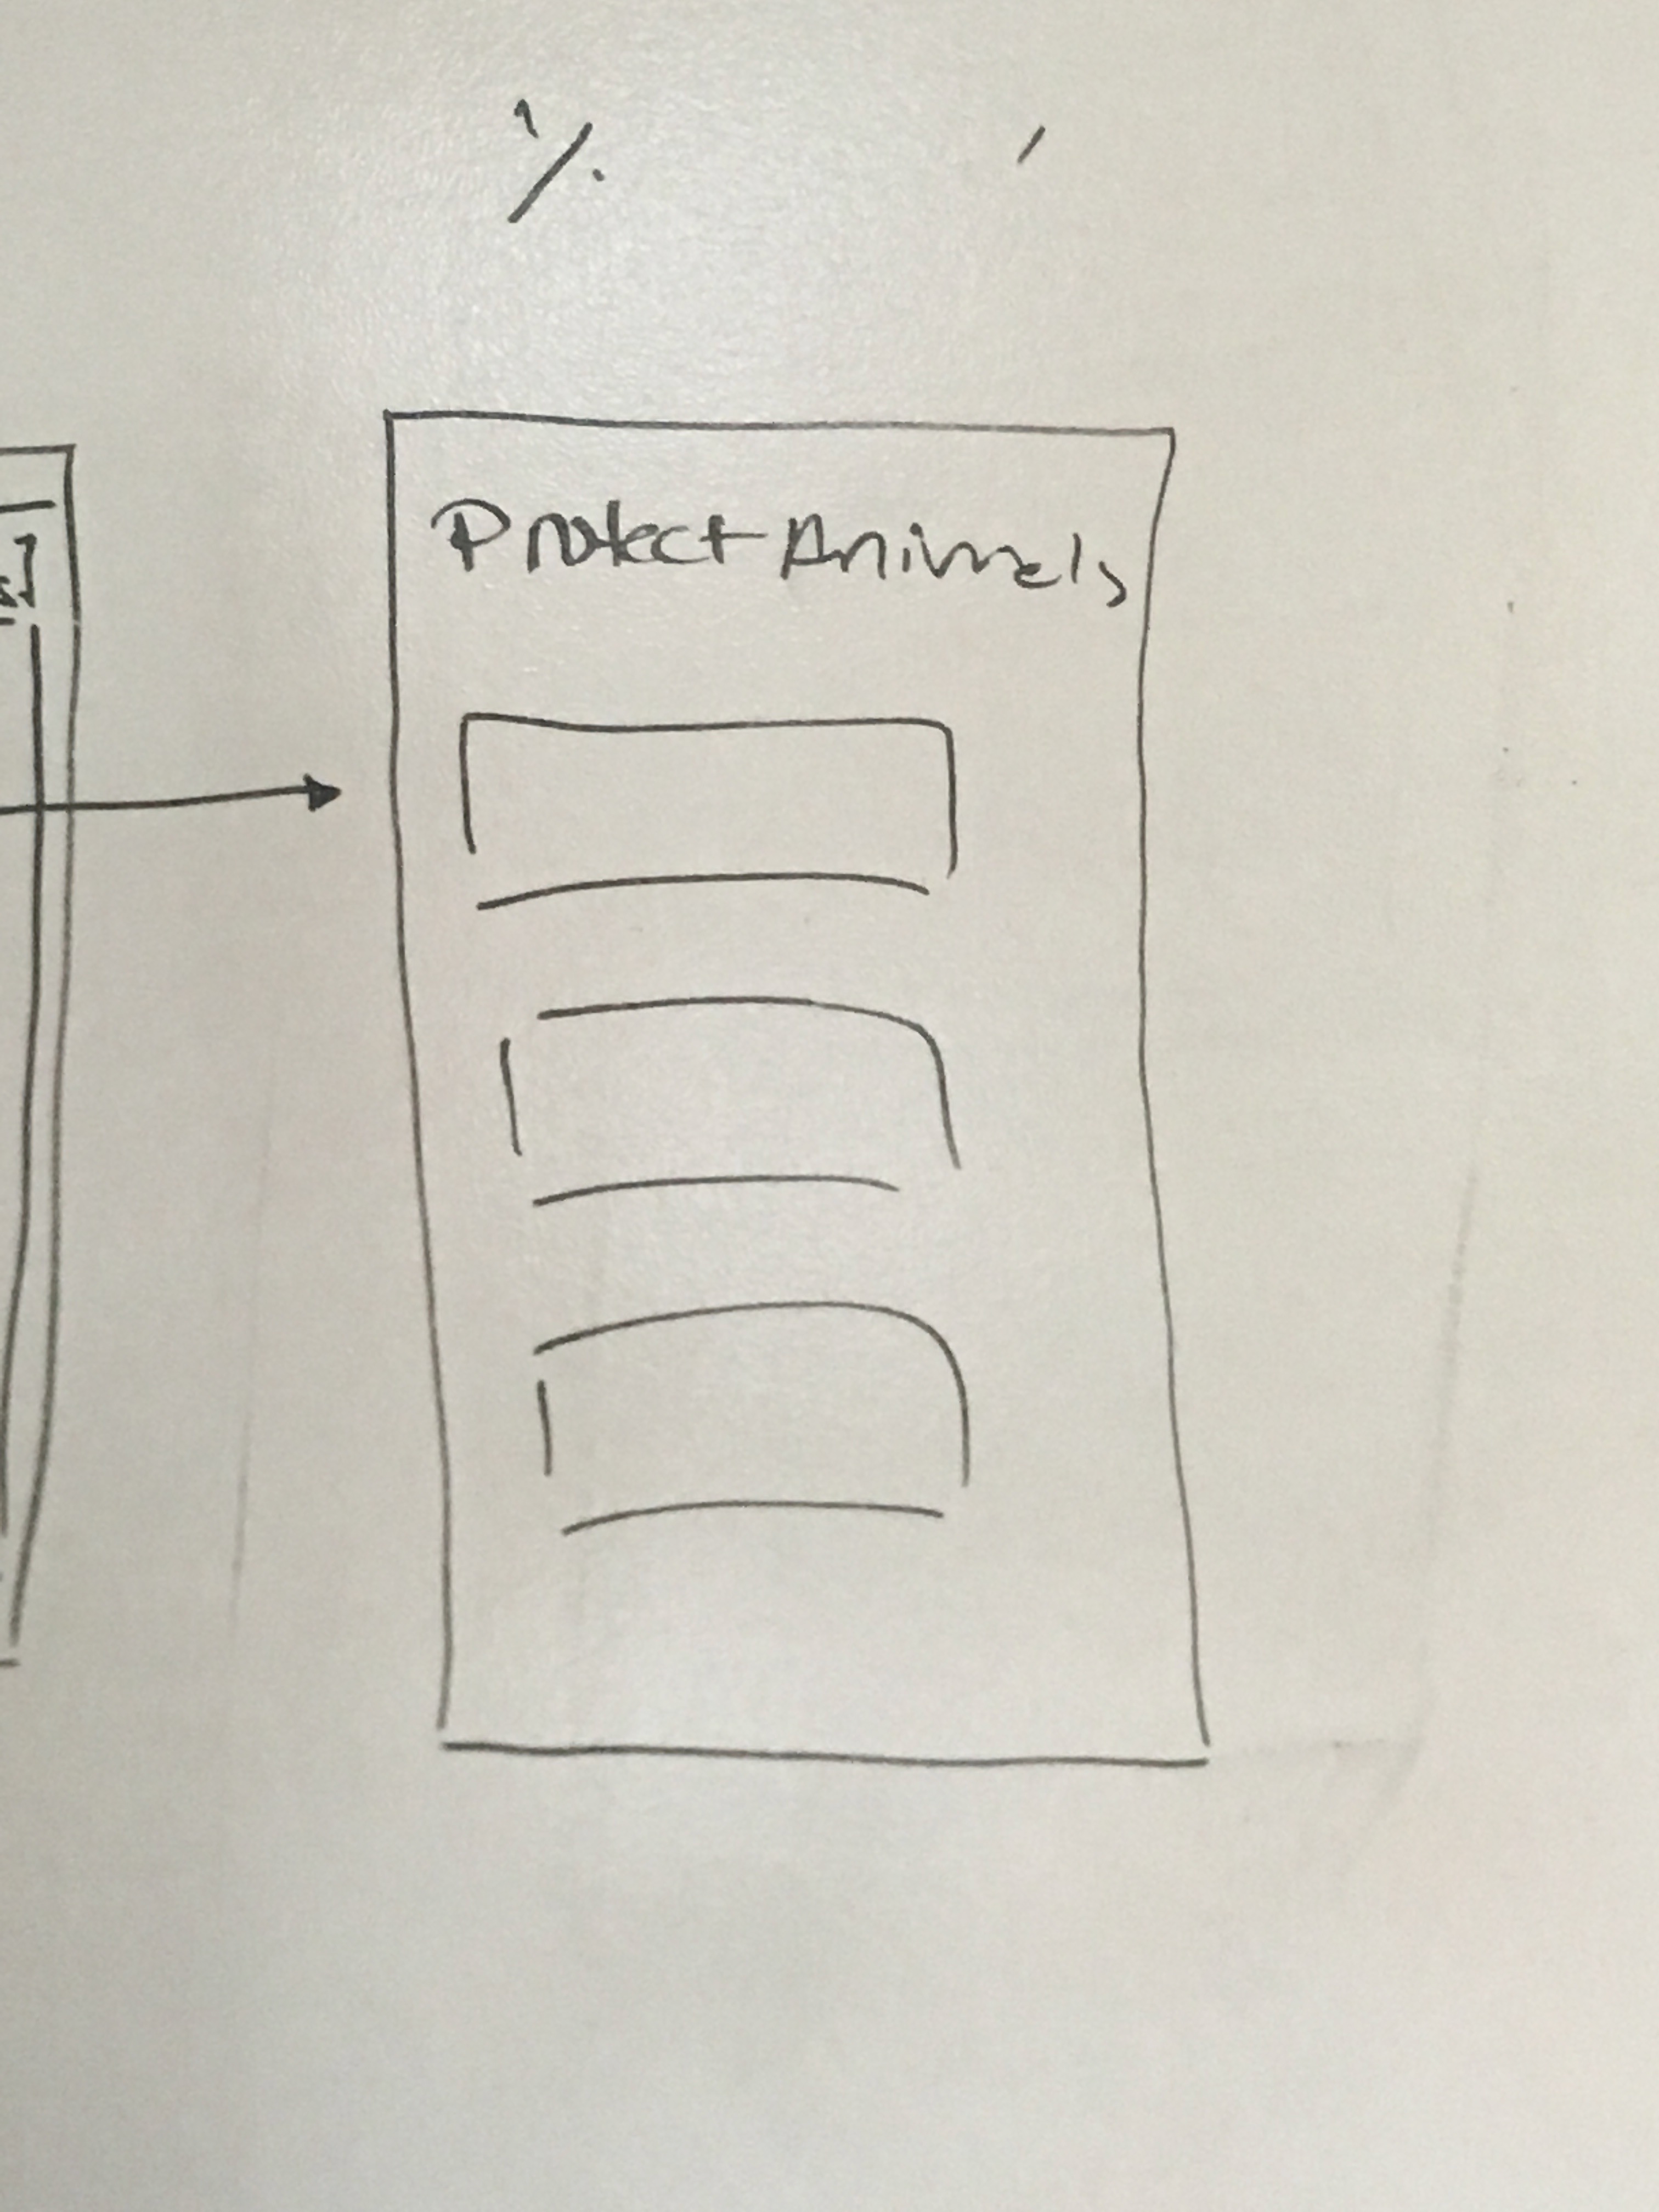 Protect Animals